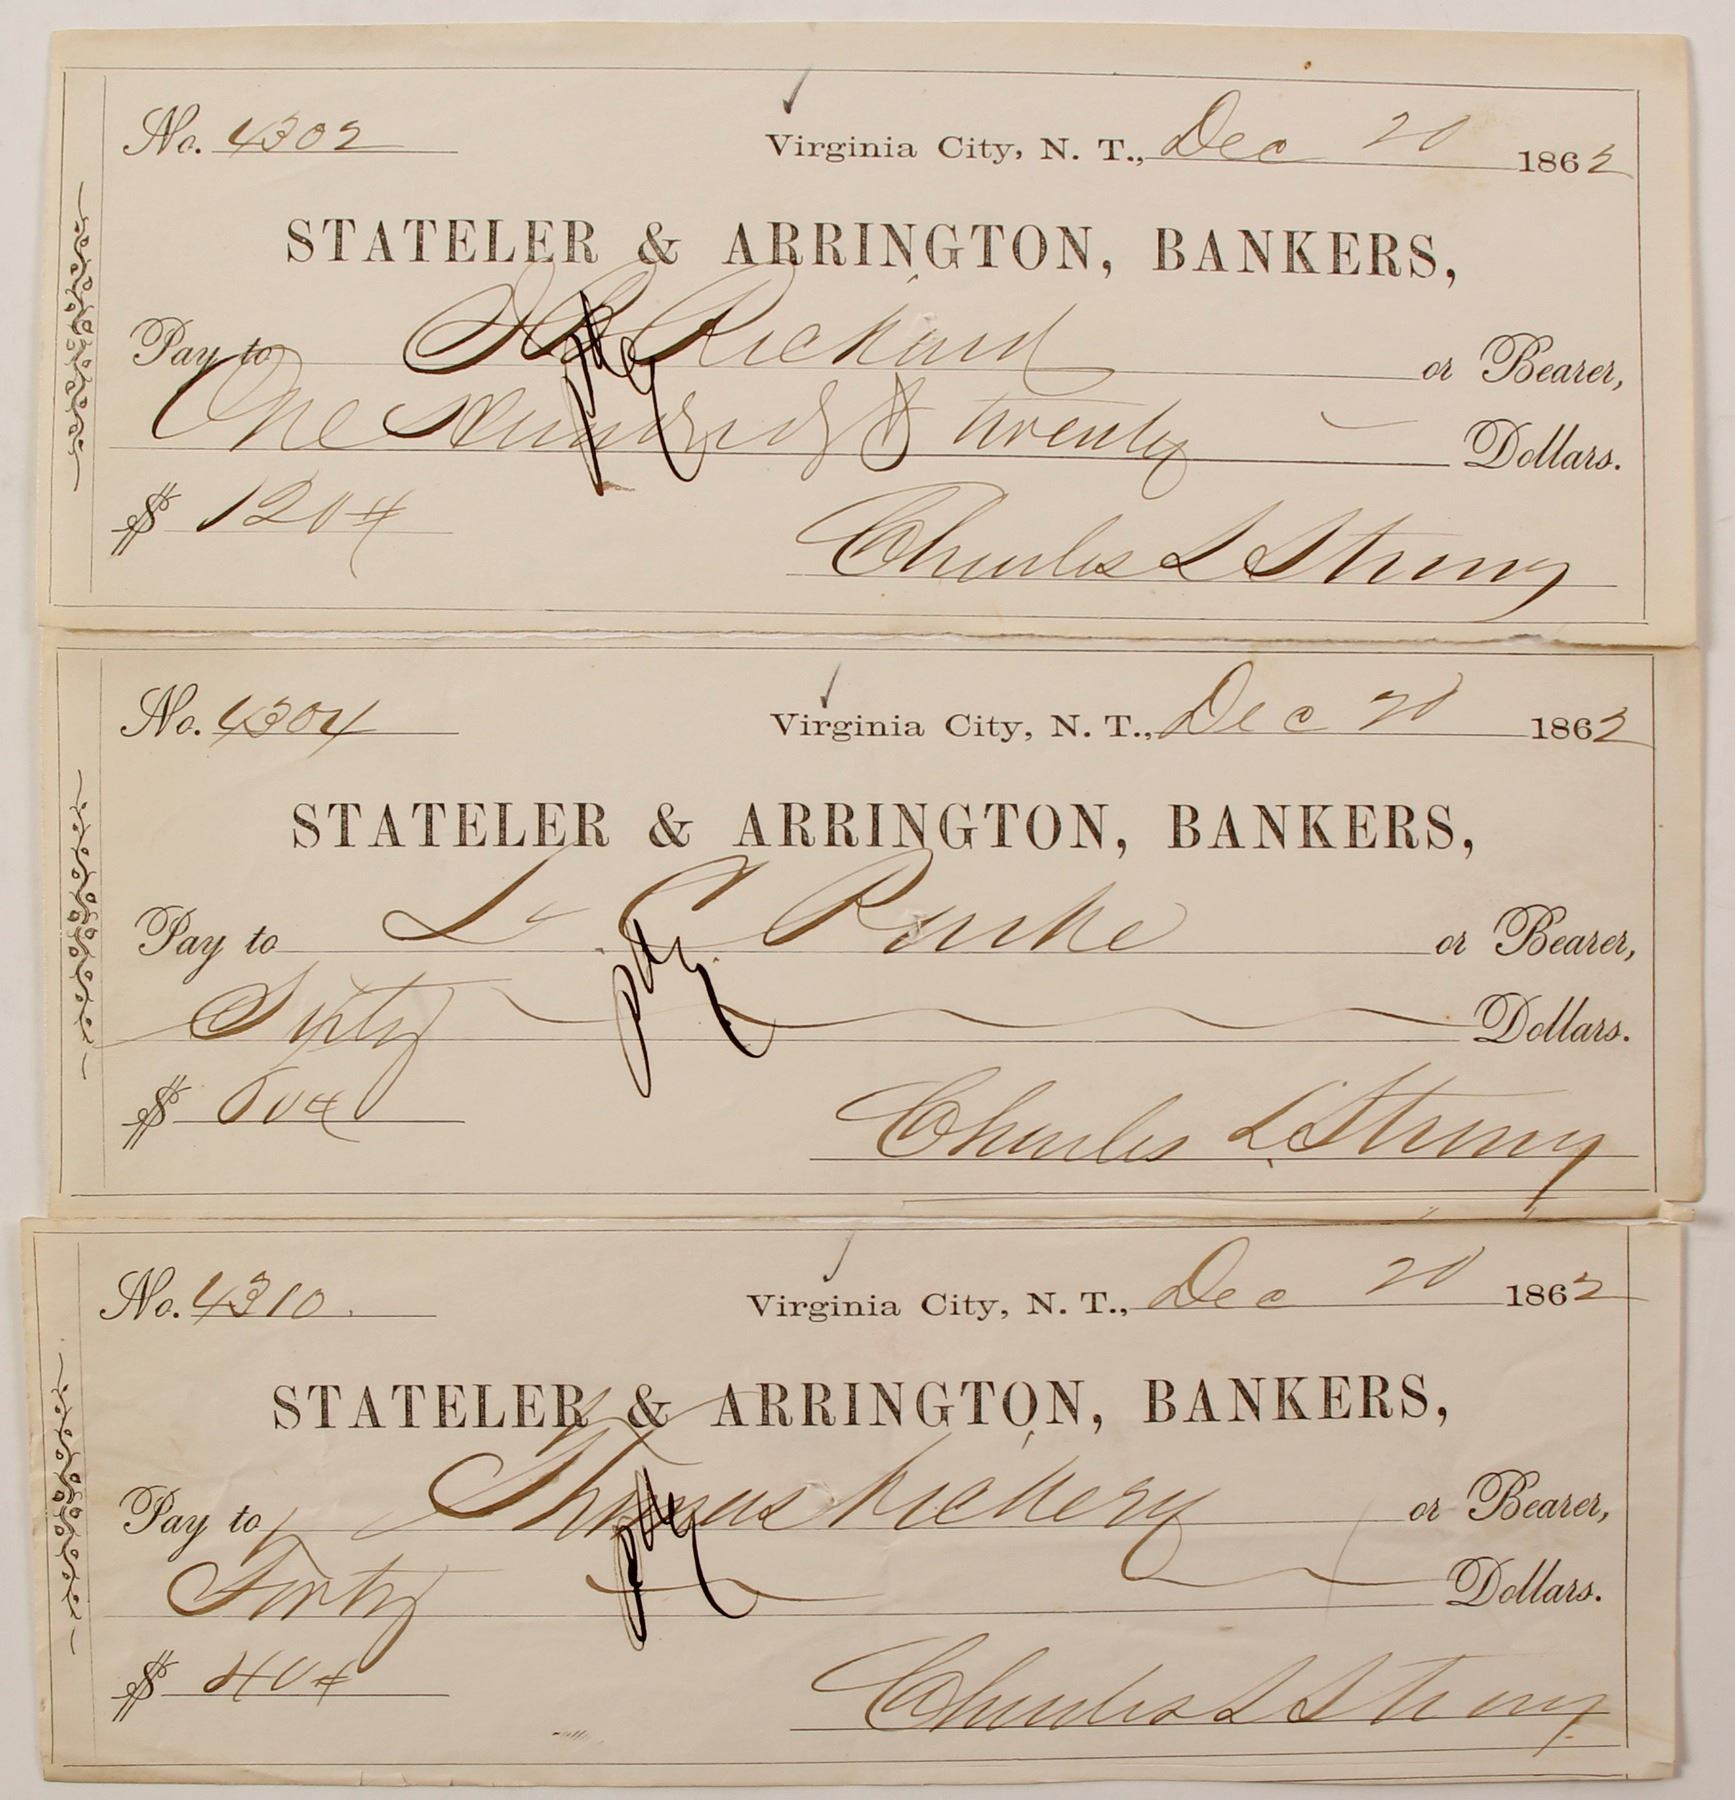 No. 4302 Virginia City, N. T., Dec 20 1862
STATELER & ARRINGTON, BANKERS,
Pay to Rickard or Bearer,
One Hundred & twenty Dollars.
$ 120
Charles L Strong
No. 4304 Virginia City, N. T., Dec 20 1862
STATELER & ARRINGTON, BANKERS,
Pay to L. C. or Bearer,
Sixty Dollars.
$ 60
Charles L Strong
No. 4310 Virginia City, N. T., Dec 20 1862
STATELER & ARRINGTON, BANKERS,
Pay to Thomas or Bearer,
Forty Dollars.
$ 40
Charles L Strong